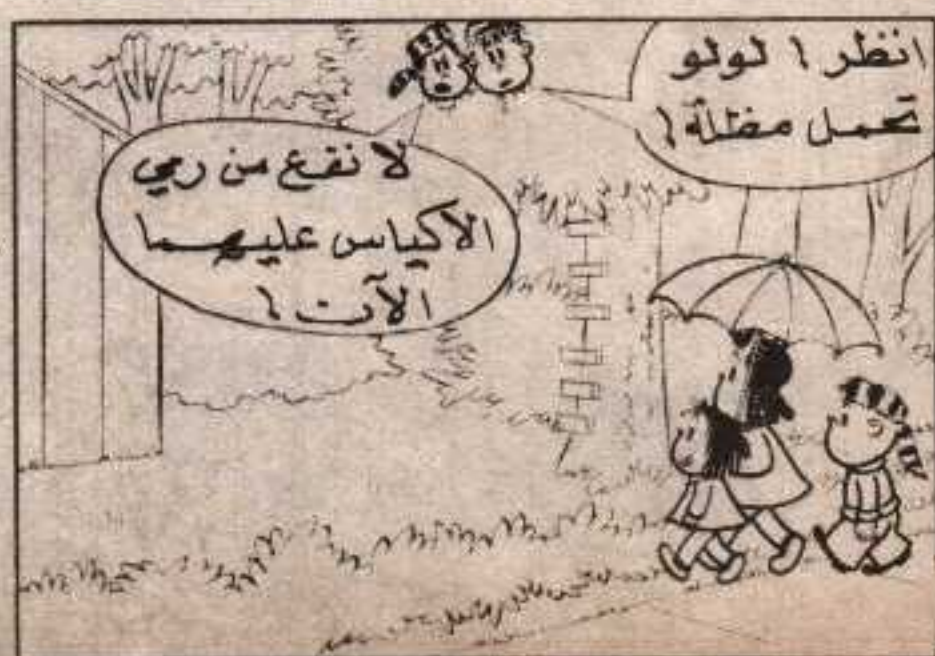 انظر ! لولو
تحمل مظلة !
لا نفع من رمي
الأكياس عليهما
الآن !